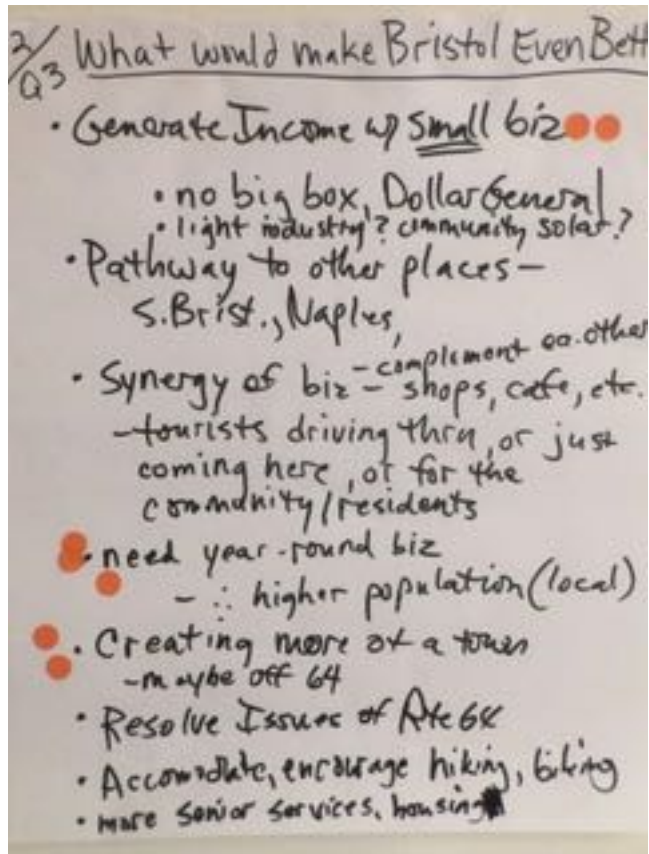 2/Q3 What would make Bristol Even Bett
• Generate Income w/ small biz
• no big box, Dollar General
• light industry? community solar?
• Pathway to other places –
S. Brist., Naples,
• Synergy of biz – complement ea. other
– shops, cafe, etc.
– tourists driving thru, or just
coming here, or for the
community/residents
• need year-round biz
– ∴ higher population (local)
• Creating more of a town
– maybe off 64
• Resolve Issues of Rte 64
• Accomodate, encourage hiking, biking
• more senior services, housing